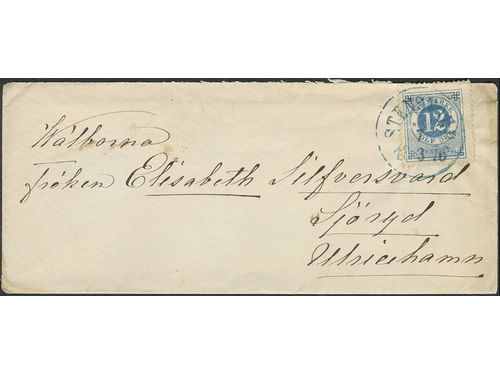 Wälborna
fröken Elisabeth Silfversvärd
Sjöryd
Ulricehamn
12
3